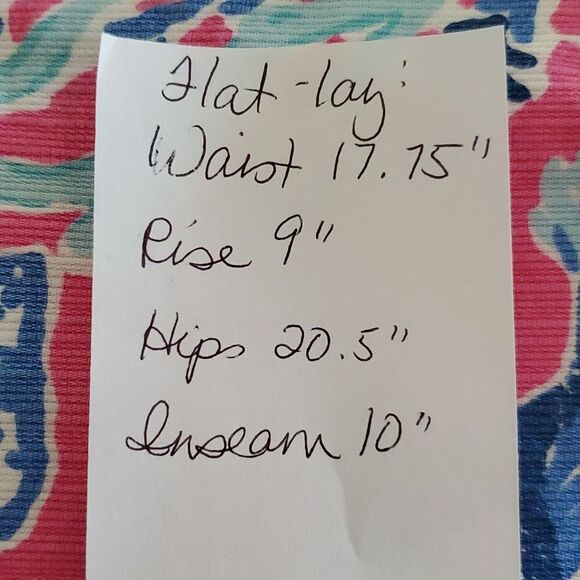 Flat-lay:
Waist 17.75"
Rise 9"
Hips 20.5"
Inseam 10"